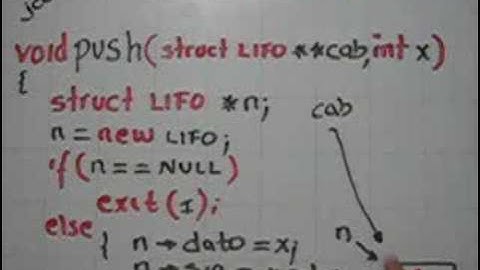 void push(struct LIFO **cab, int x)
{
struct LIFO *n;
n = new LIFO;
if(n == NULL)
exit(1);
else
{ n→dato = x;
cab
n